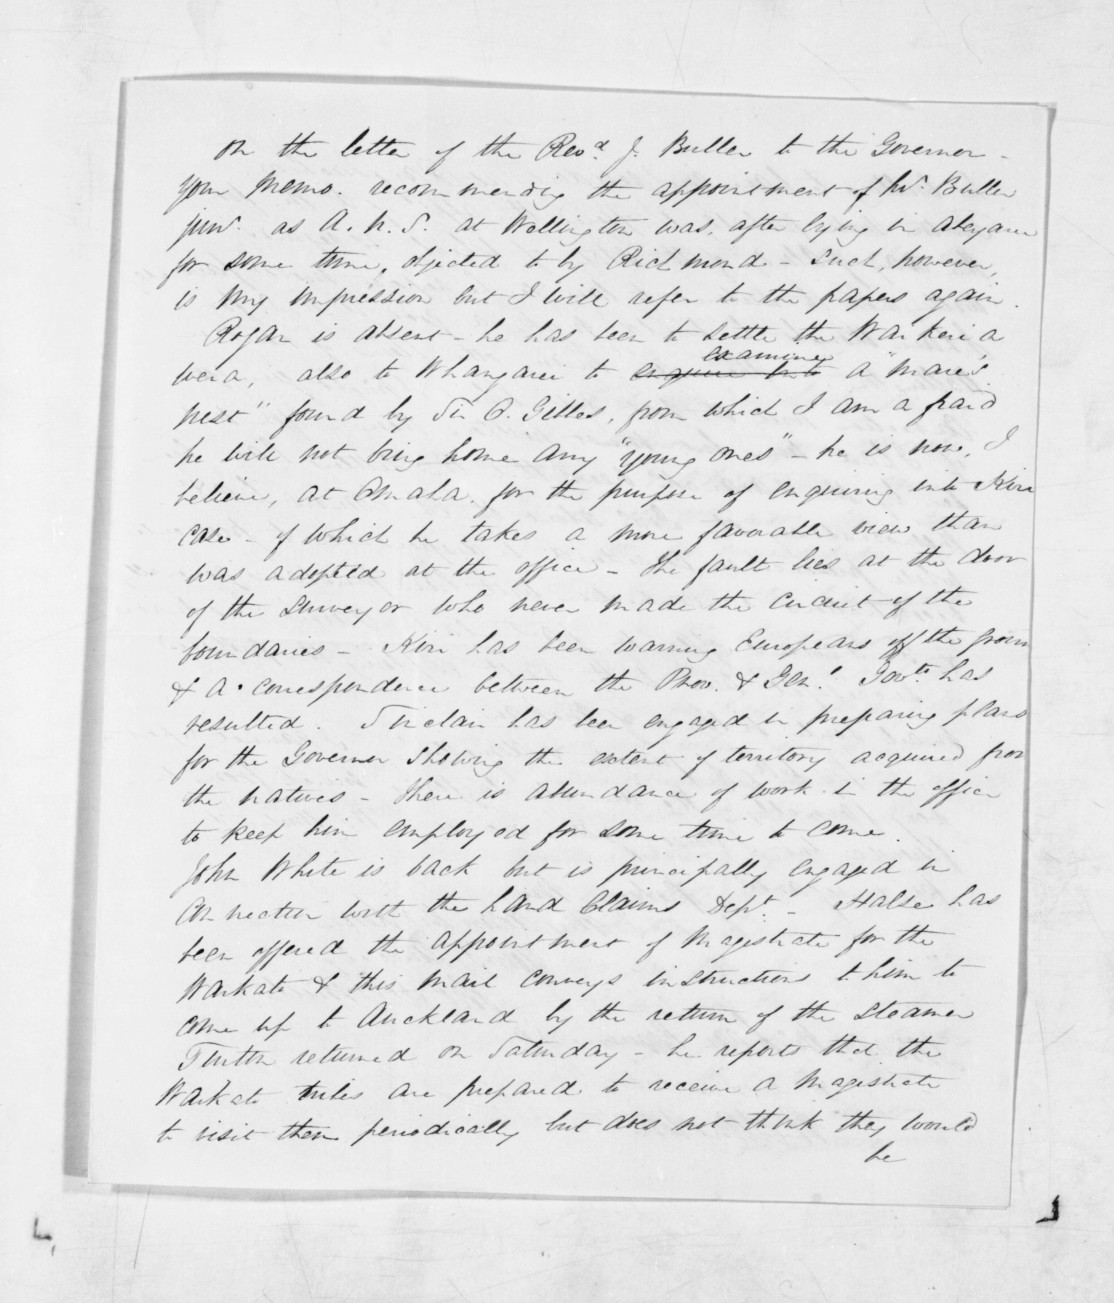 on the letter of the Revd. J. Buller to the Governor -
your memo. recommending the appointment of Mr. Buller
junr. as A. N. S. at Wellington was, after lying in abeyance
for some time, objected to by Richmond - Such, however,
is my impression but I will refer to the papers again.
Rogan is absent - he has been to settle the Waikeri a
wera, also to Whangarei to examine
enquire into a "mare's
nest" found by Sir O. Gilles, from which I am afraid
he will not bring home any "young ones" - he is now, I
believe, at Omaha for the purpose of enquiring into Kiri
case - of which he takes a more favorable view than
was adopted at the office - The fault lies at the door
of the Surveyor who never made the circuit of the
boundaries - Kiri has been warning Europeans off the groun
& a correspondence between the Prov. & Genl. Govts. has
resulted. Sinclair has been engaged in preparing plans
for the Governor showing the extent of territory acquired from
the natives - There is abundance of work in the office
to keep him employed for some time to come.
John White is back but is principally engaged in
connection with the Land Claims Dept. - Halse has
been offered the appointment of Magistrate for the
Waikato & this mail conveys instructions to him to
come up to Auckland by the return of the steamer
Turton returned on Saturday - he reports that the
Waikato tribes are prepared to receive a Magistrate
to visit them periodically but does not think they would
be